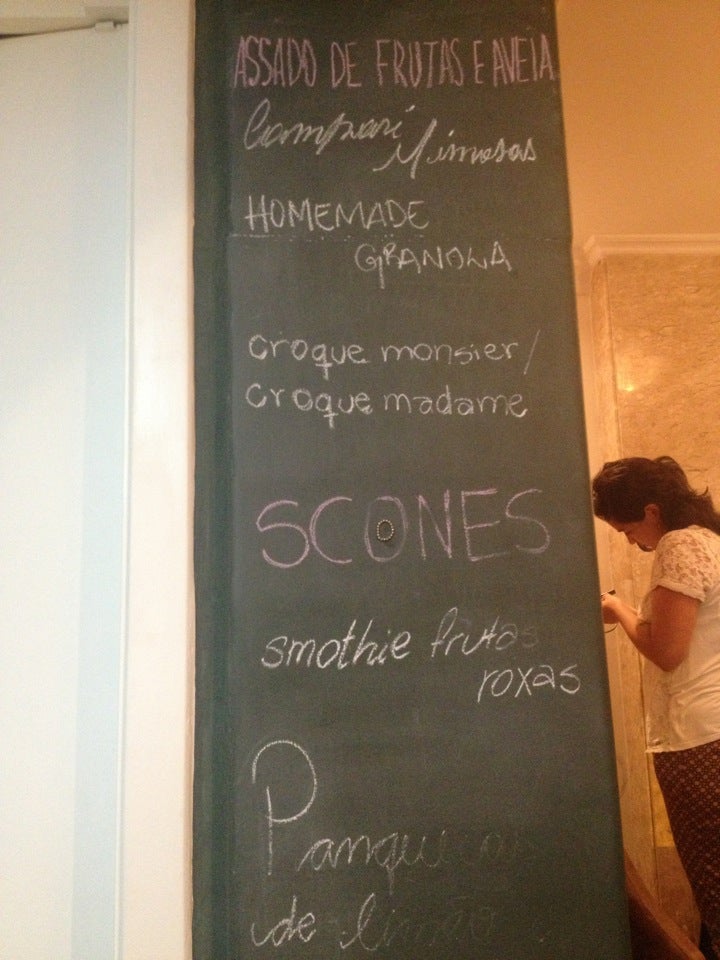 ASSADO DE FRUTAS E AVEIA
Campari
Mimosas
HOMEMADE
GRANOLA
croque monsier/
croque madame
SCONES
smothie frutas
roxas
Panquecas
de limão